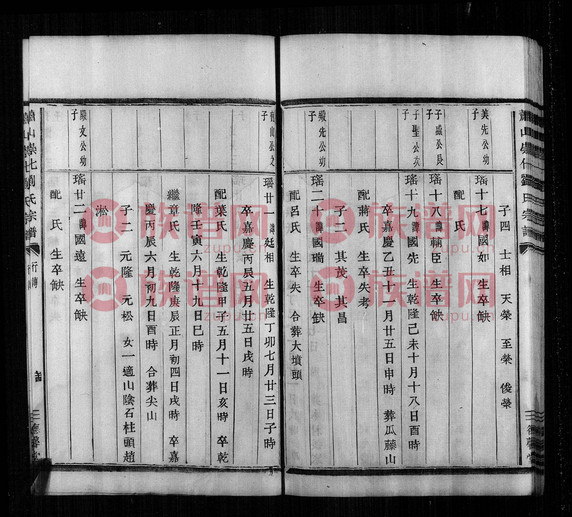 子四 士相 天榮 至榮 俊榮
美先公幼子
瑤十七 壽國如 生卒缺
配 氏
子盛公長子
瑤十八 壽輔臣 生卒缺
子聖公次子
瑤十九 壽國先 生乾隆己未十月十八日酉時
卒嘉慶乙丑十一月廿五日申時 葬瓜藤山
配蔣氏 生卒失考
子二 其茂 其昌
瑤二十 壽國瑞 生卒缺
配呂氏 生卒失 合葬大墳頭
瑤廿一 壽廷相 生乾隆丁卯七月廿三日子時
卒嘉慶丙辰五月廿五日戌時
配葉氏 生乾隆甲子五月十一日亥時 卒乾
隆壬寅六月十九日巳時
繼章氏 生乾隆庚辰正月初四日戌時 卒嘉
慶丙辰六月初九日酉時 合葬尖山
子二 元隆 元松 女一適山陰石柱頭趙
淞
瑤廿二 壽國遠 生卒缺
配 氏 生卒缺
氏宗譜
行傳
族譜網
zupu.cn